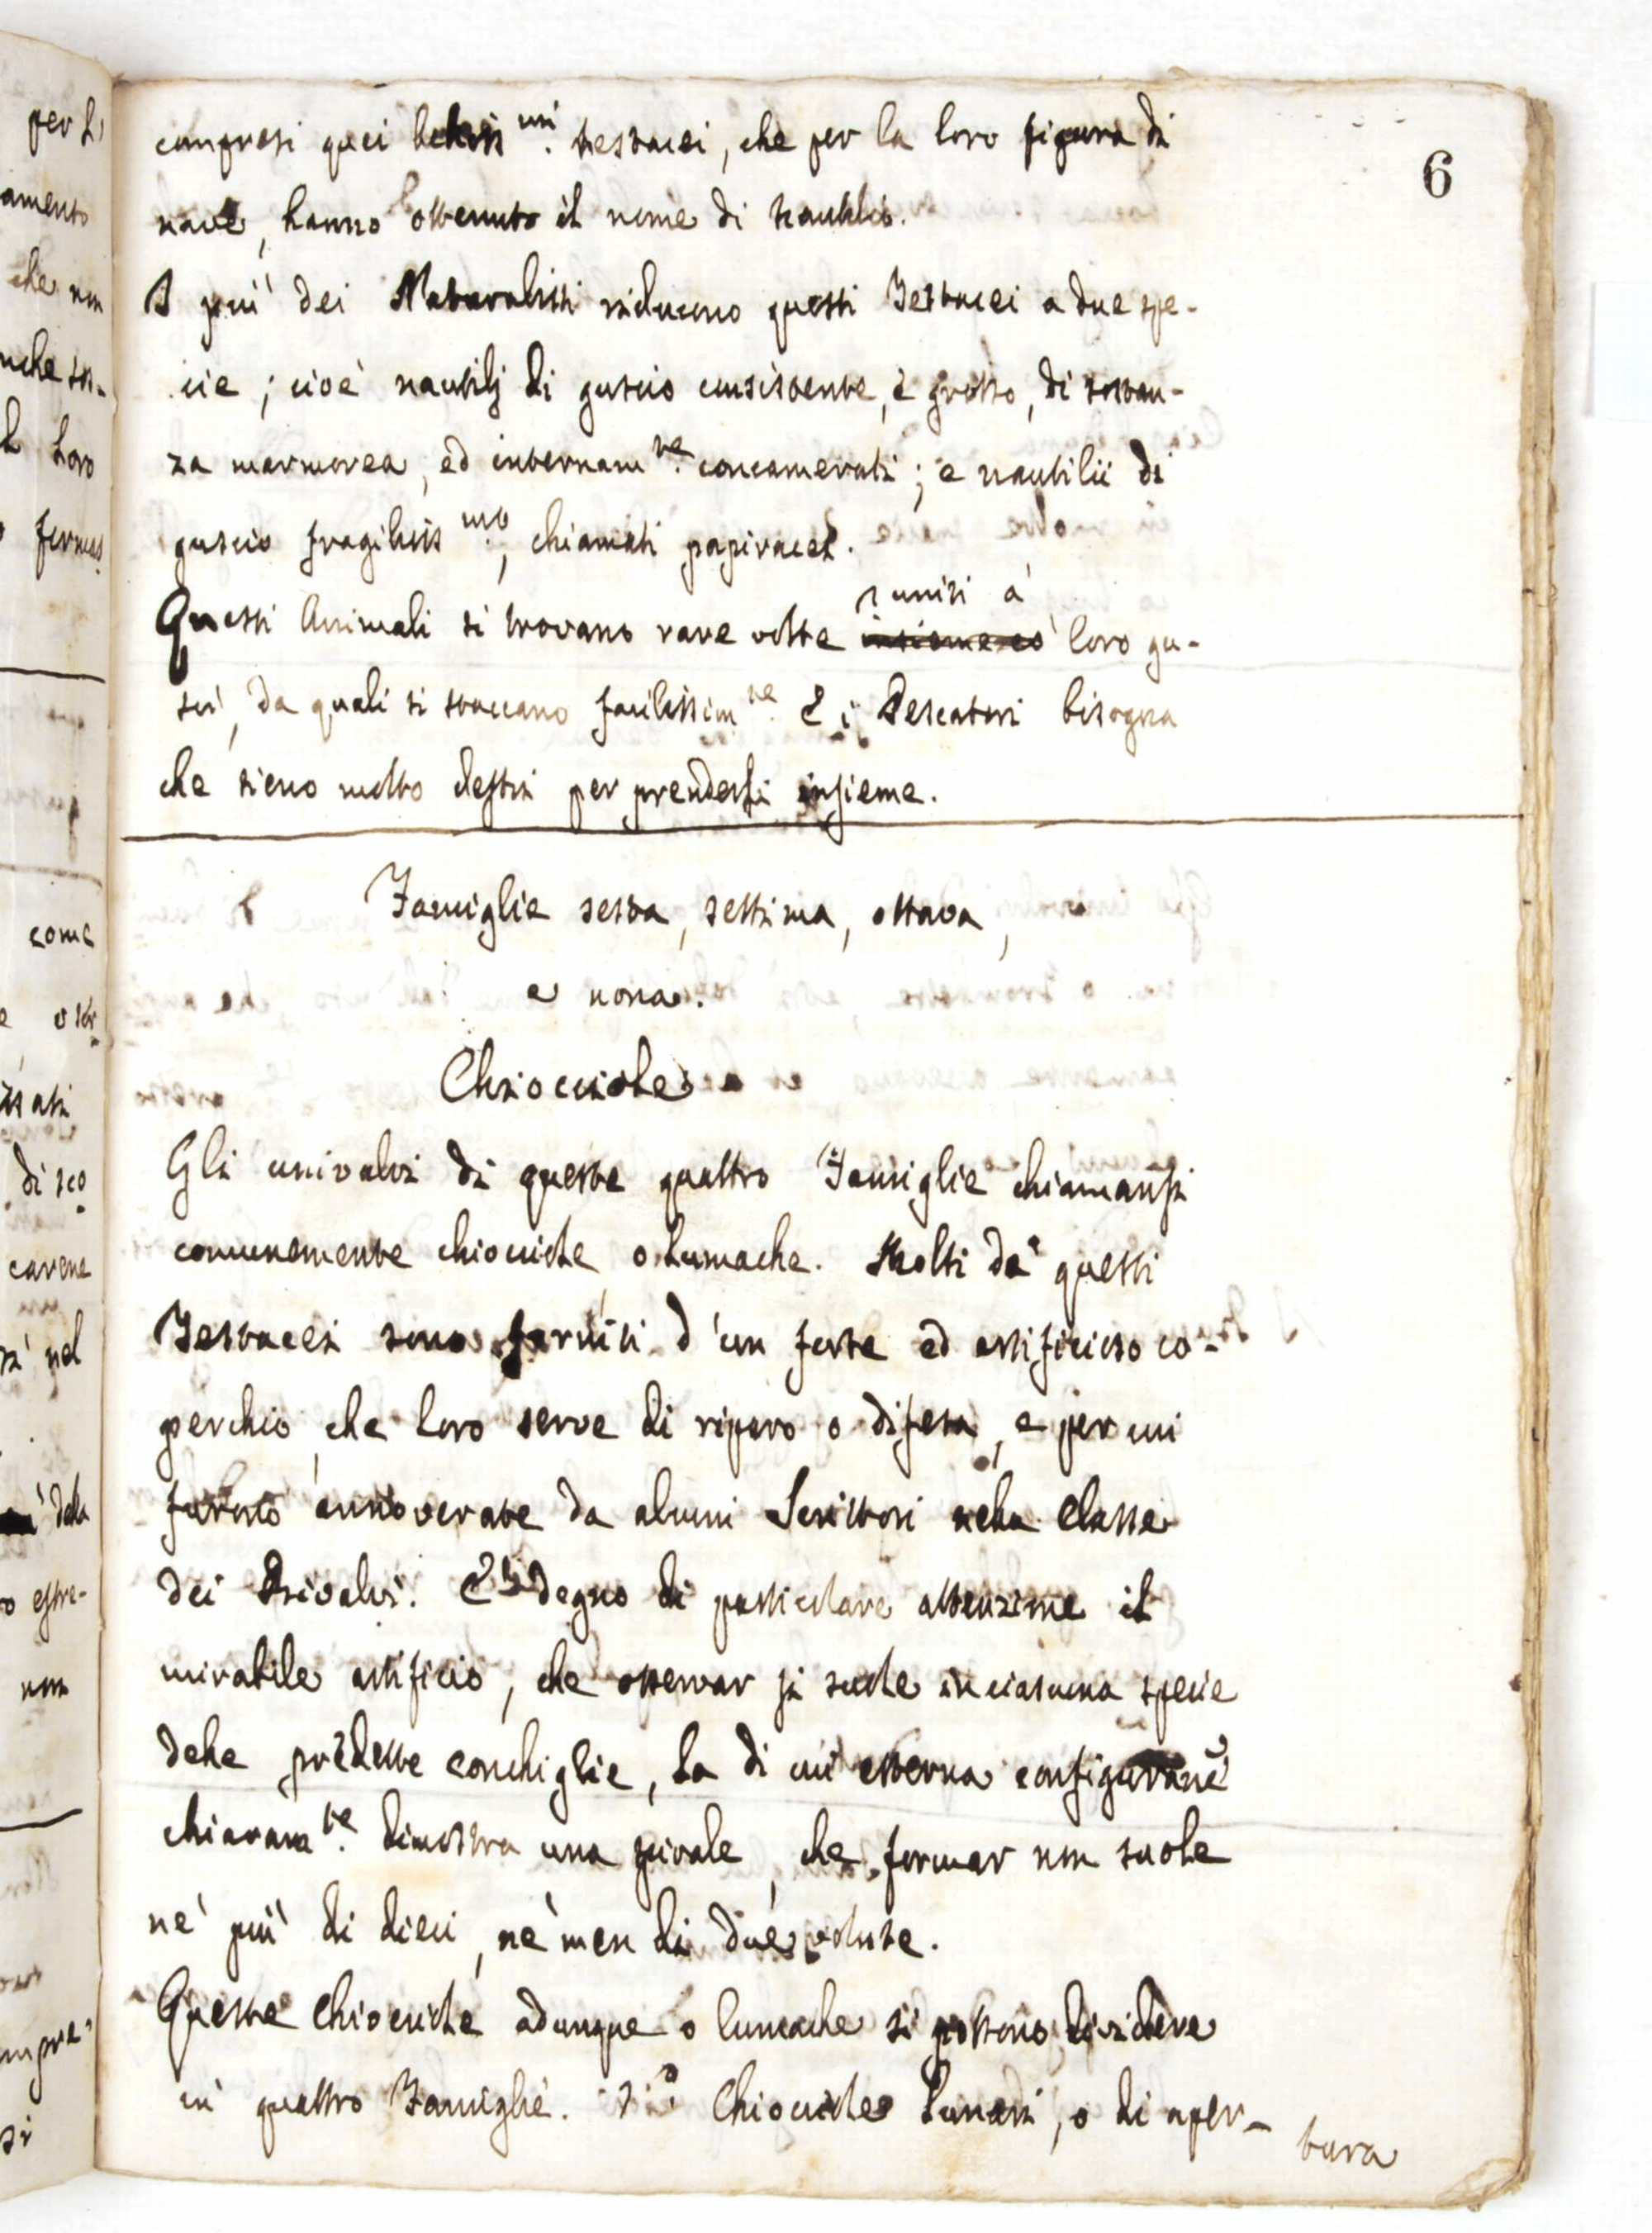 6
compresi quei bellissi.mi testacei, che per la loro figura di
nave, hanno ottenuto il nome di nautili.
I più dei Naturalisti riducono questi Testacei a due spe-
cie; cioè nautilj di guscio consistente, e grosso, di sostan-
za marmorea, ed internam.te concamerati; e nautilii di
guscio fragiliss.mo, chiamati papiracei.
runiti a'
Questi Animali si trovano rare volte insieme co' loro gu-
sci, da quali si staccano facilissim.te E i Pescatori bisogna
che sieno molto destri per prenderli insieme.
Famiglie sesta, settima, ottava,
e nona.
Chiocciole
Gli univalvi di queste quattro Famiglie chiamansi
comunemente chiocciole, o lumache. Molti da questi
Testacei sono forniti d'un forte ed artificioso co-
perchio, che loro serve di riparo o difesa, e per cui
furono annoverate da alcuni Scrittori nella Classe
dei Bivalvi. E' degno di particolare attenzione il
mirabile artificio, che osservar si suole in ciascuna specie
delle predette conchiglie, la di cui esterna configurane
chiaram.te dimostra una spirale, che formar non suole
ne' più di dieci, ne' men di due volute.
Queste Chiocciole adunque o lumache si possono dividere
in quattro Famiglie. Chiocciole Lunari, o di aper-
tura
per l'
amento
che non
Loro
come
di sco
carene
nel
della
estre-
non
mpre-
si